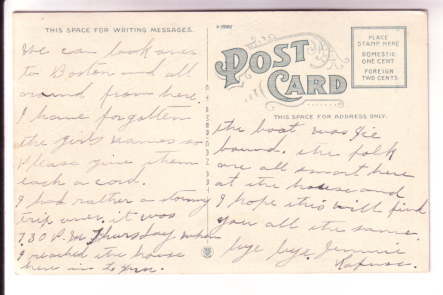 THIS SPACE FOR WRITING MESSAGES.
We can look over
to Boston and all
around from here.
I have forgotten
the girls names so
Please give them
each a card.
I had rather a stormy
trip over. it was
7.30 P.M Thursday when
I reached the house
here in to
POST CARD
THIS SPACE FOR ADDRESS ONLY.
PLACE
STAMP HERE
DOMESTIC
ONE CENT
FOREIGN
TWO CENTS
the boat was Ice
bound. the folk
are all smart here
at the house and
I hope this will find
you all the same.
bye bye Jennie